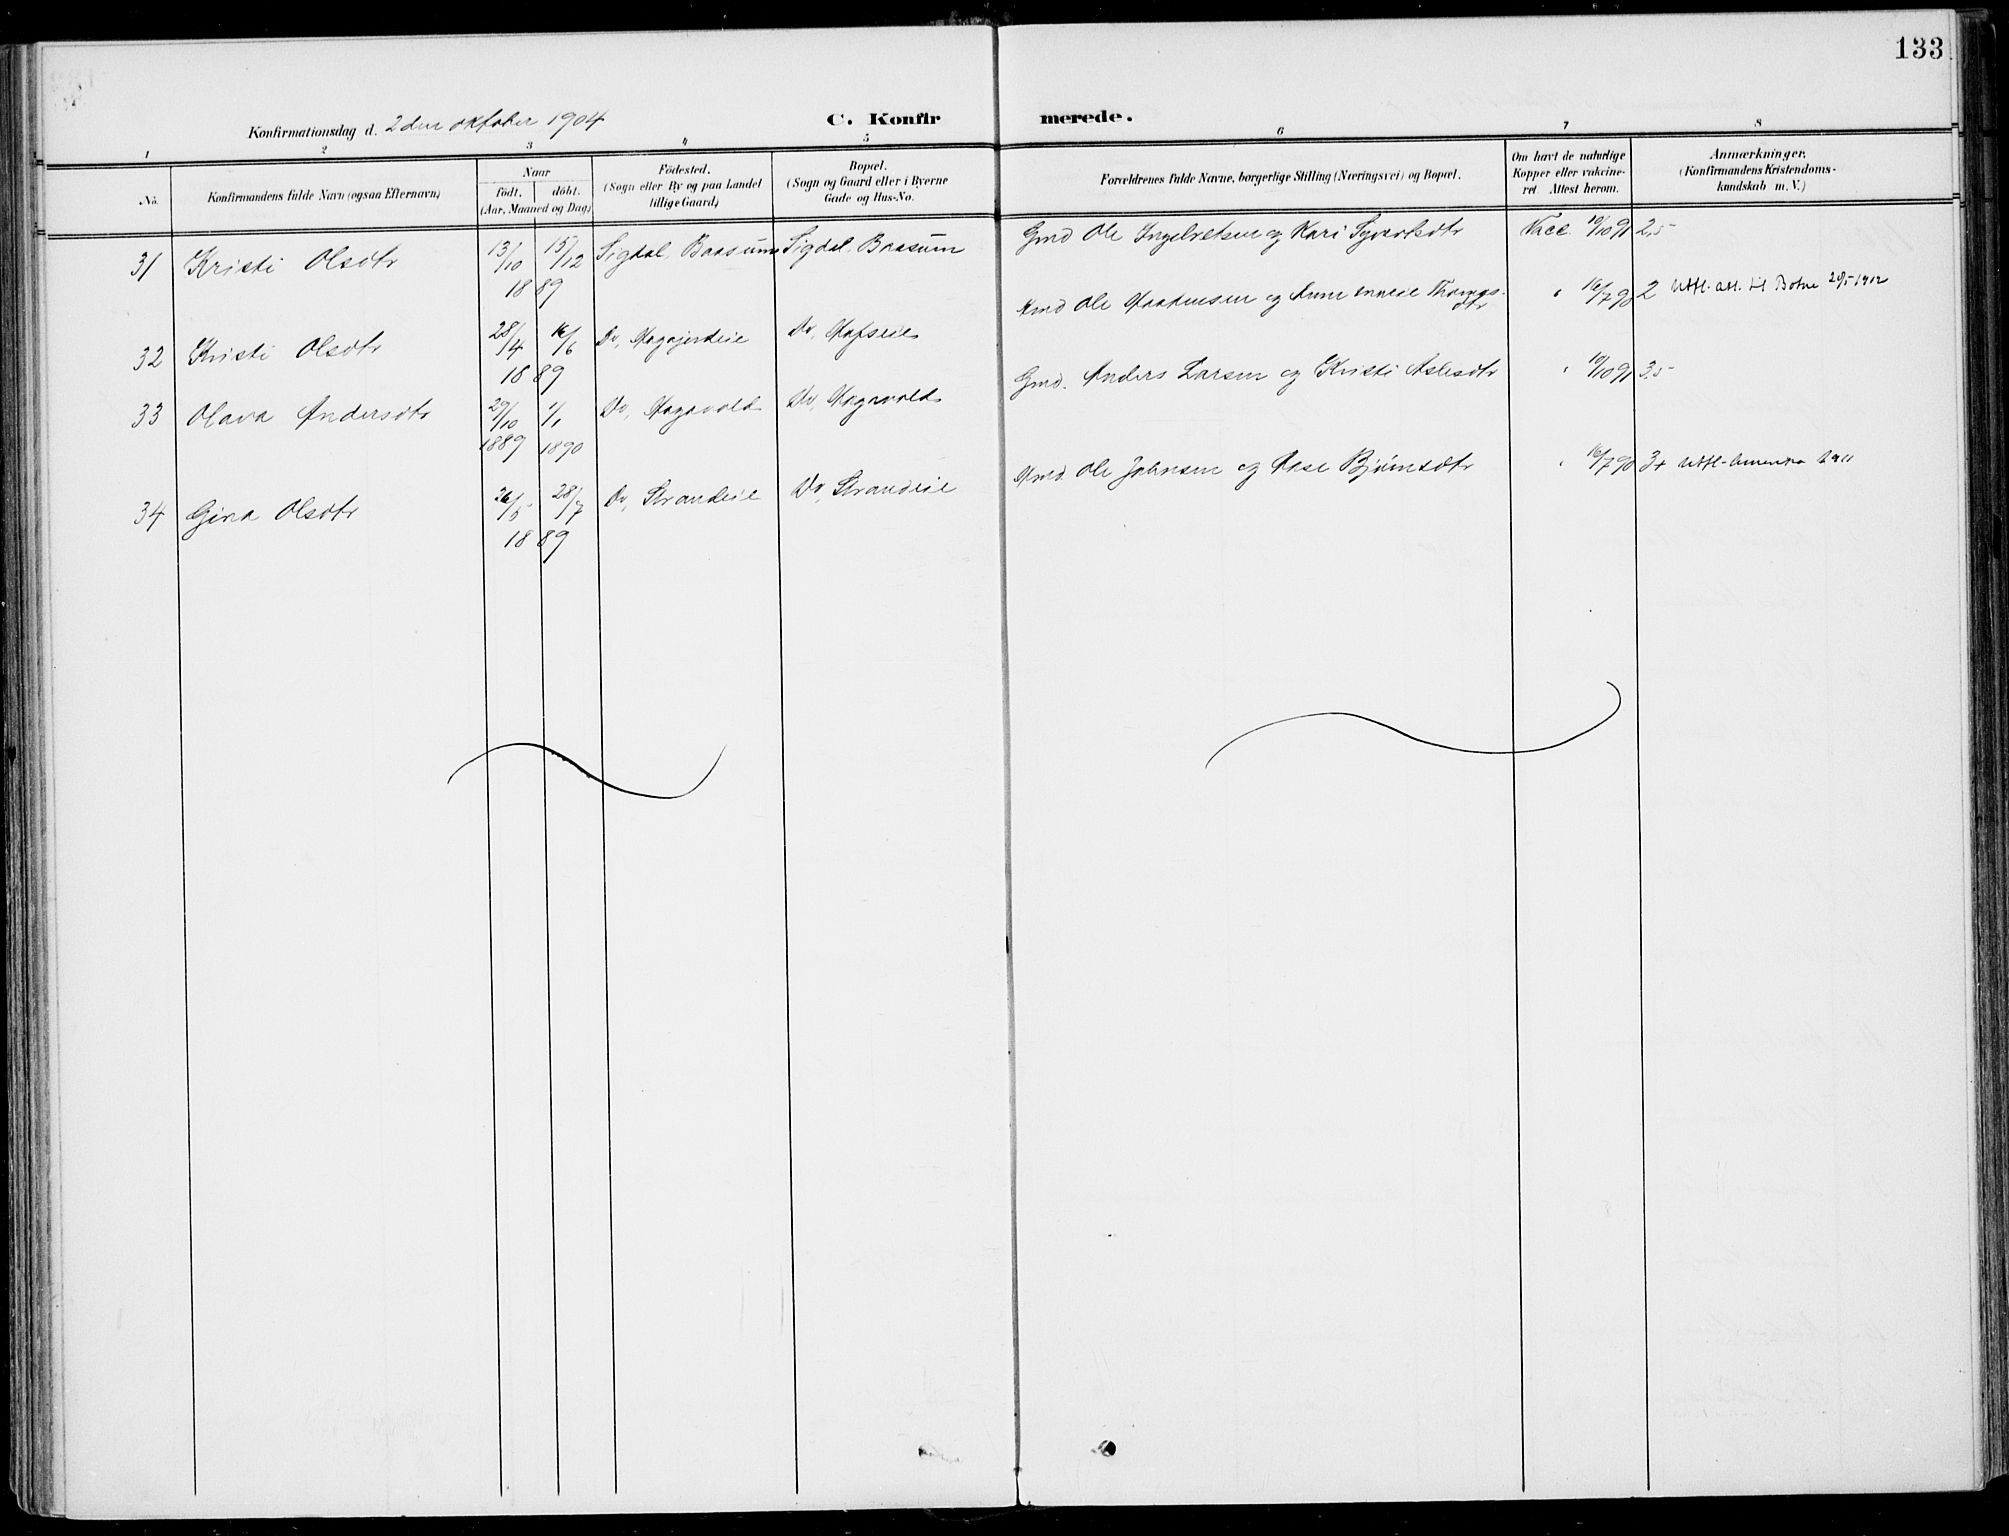 133
Konfirmationsdag d. 2den oktober 1904
C. Konfirmerede.
1 2 3 4 5 6 7 8
No. Konfirmandens fulde Navn (ogsaa Efternavn)
Naar født, døbt. (Aar, Maaned og Dag)
Fødested. (Sogn eller By og paa Landet tillige Gaard)
Bopæl. (Sogn og Gaard eller i Byerne Gade og Hus-No.
Forældrenes fulde Navne, borgerlige Stilling (Næringsvei) og Bopæl.
Om havt de naturlige Kopper eller vakcineret Attest herom.
Anmærkninger. (Konfirmandens Kristendomskundskab m. V.)
31 Kristi Olsdtr 13/10 15/12 1889 Sigdal, Baasum Sigdal Baasum Gmd Ole Ingebretsen og Kari Syvertsdtr Vacc. 10/10 91 2,5
32 Kristi Olsdtr 28/4 16/6 1889 Do, Do, Ole og Anne Marie Thomasdtr " 16/7 90 2 Utfl. att. til Botne 1912
33 Olava Andersdtr 29/10 1889 1/1 1890 Do, Hagavold Do, Hagavold Gmd. Anders Larsen og Kristi Aslesdtr " 10/10 91 3,5
34 Gina Olsdtr 26/5 28/7 1889 Do, Strandeie Do, Strandeie Hmd. Ole Johnsen og Aase Bjørnsdtr " 16/7 90 3+ Utfl. Amerika 1911